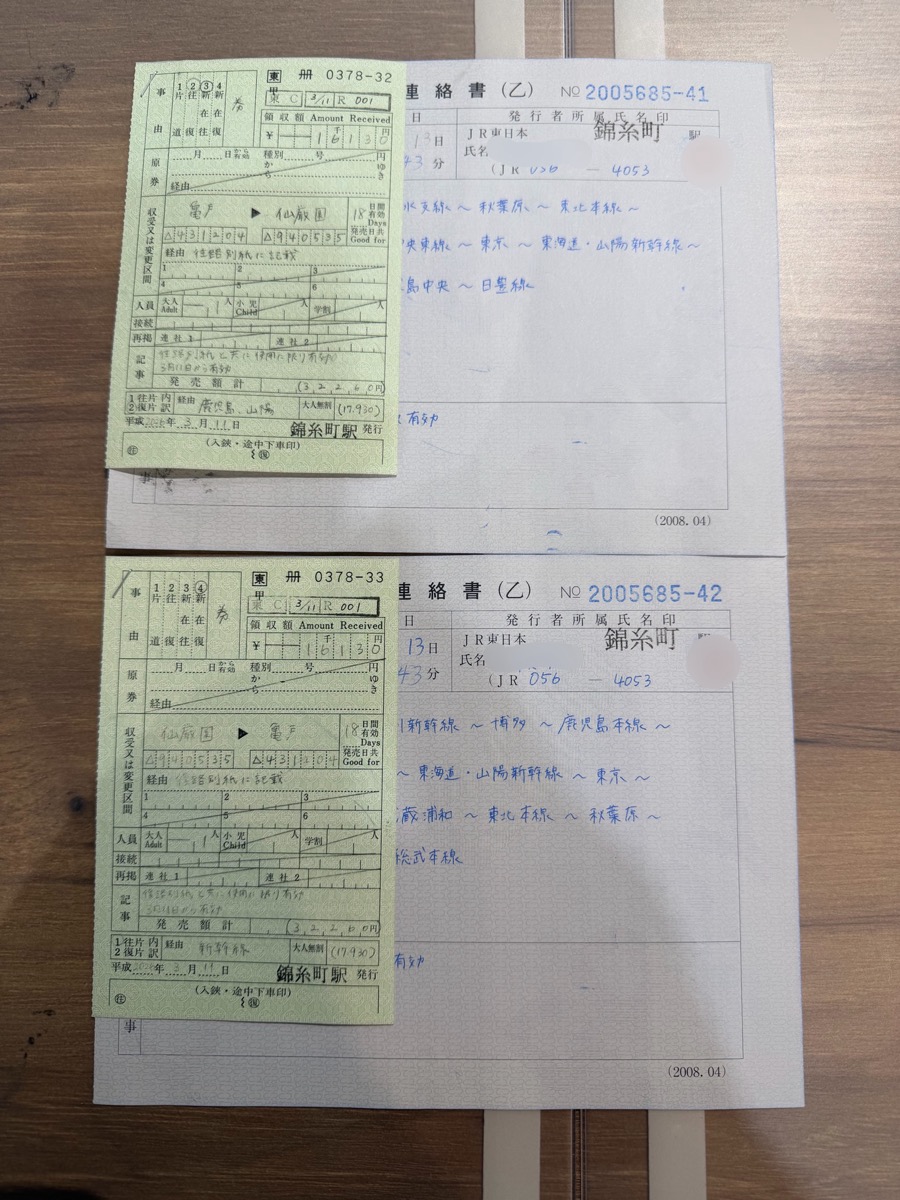 東 冊 0378-32
甲
東 C 3/11 R 001
事由
1片道 2往復 3新在往 4新在復
券
領収額 Amount Received
¥ 16130 千 円
原券
月 日から有効 種別 号 円
から ゆき
経由
収受又は変更区間
亀戸 ▶ 仙厳園
18 日間有効 Days
発売日共 Good for
△431204 △940535
経由 経路別紙に記載
1 2 3
4 5 6
人員 大人 Adult 1人 小児 Child 人 学割 人
接続
再掲 連社1 連社2
記事
経路別紙と共に使用に限り有効
3月11日から有効
発売額計 (32,260円)
1往片内
2復片訳 経由 鹿児島、山陽 大人無割 (17.930)
平成 年 3 月 11 日 錦糸町駅 発行
(入鋏・途中下車印)
連絡書(乙) № 2005685-41
日 発行者所属氏名印
13日 JR東日本 錦糸町 駅
43分 氏名
(JR 056 — 4053
水支線 ~ 秋葉原 ~ 東北本線 ~
央東線 ~ 東京 ~ 東海道・山陽新幹線 ~
島中央 ~ 日豊線
有効
事
(2008.04)
東 冊 0378-33
甲
東 C 3/11 R 001
事由
1片道 2往復 3新在往 4新在復
券
領収額 Amount Received
¥ 16130 千 円
原券
月 日から有効 種別 号 円
から ゆき
経由
収受又は変更区間
仙厳園 ▶ 亀戸
18 日間有効 Days
発売日共 Good for
△940535 △431204
経由 経路別紙に記載
1 2 3
4 5 6
人員 大人 Adult 1人 小児 Child 人 学割 人
接続
再掲 連社1 連社2
記事
経路別紙と共に使用に限り有効
3月11日から有効
発売額計 (32,260円)
1往片内
2復片訳 経由 新幹線 大人無割 (17.930)
平成 年 3 月 11 日 錦糸町駅 発行
(入鋏・途中下車印)
連絡書(乙) № 2005685-42
日 発行者所属氏名印
13日 JR東日本 錦糸町 駅
43分 氏名
(JR 056 — 4053
新幹線 ~ 博多 ~ 鹿児島本線 ~
~ 東海道・山陽新幹線 ~ 東京 ~
蔵浦和 ~ 東北本線 ~ 秋葉原 ~
総武本線
有効
事
(2008.04)